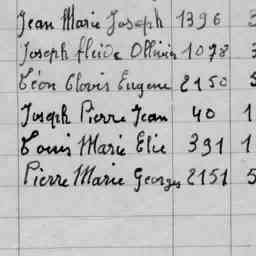 Jean Marie Joseph 1396 3
Joseph Ollivier 1098 3
Léon Clovis Eugene 2150 5
Joseph Pierre Jean 40 1
Louis Marie Elie 391 1
Pierre Marie Georges 2151 5